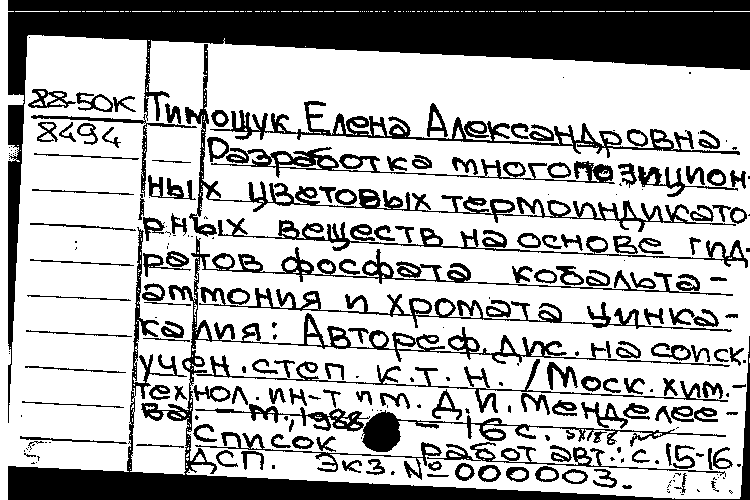 88-50К
8494
Тимощук, Елена Александровна.
Разработка многопозицион-
ных цветовых термоиндикато-
рных веществ на основе гид-
ратов фосфата кобальта-
аммония и хромата цинка-
калия: Автореф. дис. на соиск.
учен. степ. к.т.н. /Моск. хим.-
технол. ин-т им. Д.И. Менделее-
ва. – М., 1988. – 16 с.
Список работ авт.: с. 15-16.
ДСП. Экз. № 000003.